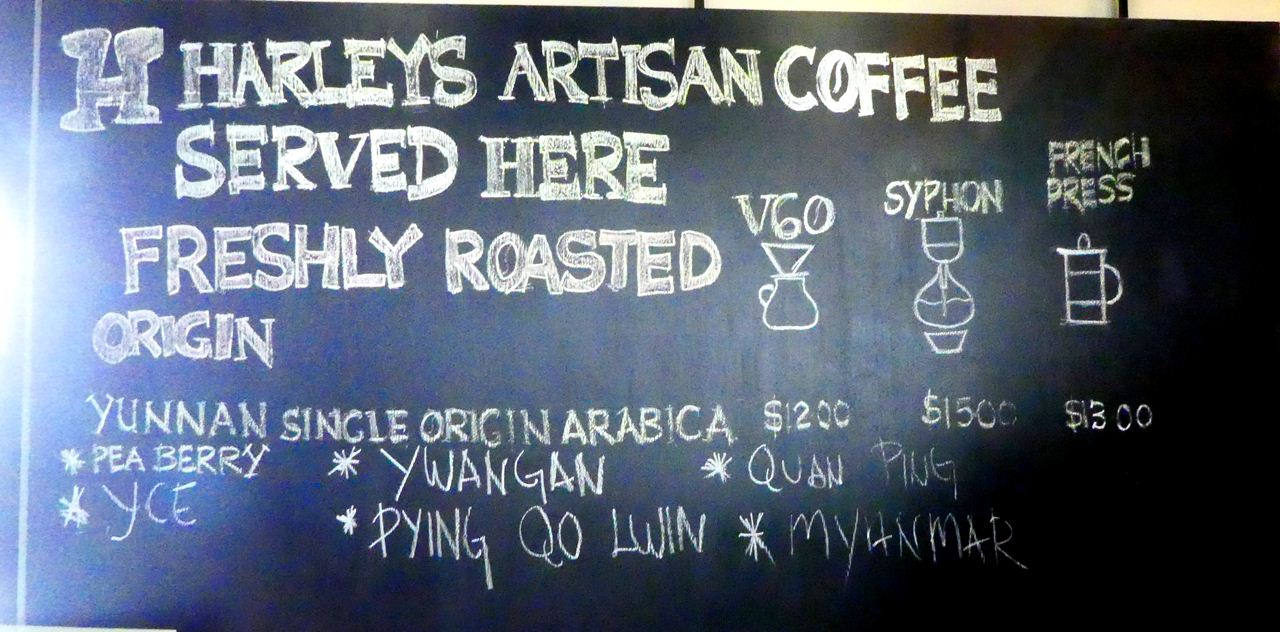 H HARLEY'S ARTISAN COFFEE
SERVED HERE
FRESHLY ROASTED
ORIGIN
V60
SYPHON
FRENCH
PRESS
YUNNAN SINGLE ORIGIN ARABICA $1200 $1500 $1300
* PEA BERRY * YWANGAN * QUAN PING
* YCE * PYING QO LWIN * MYANMAR